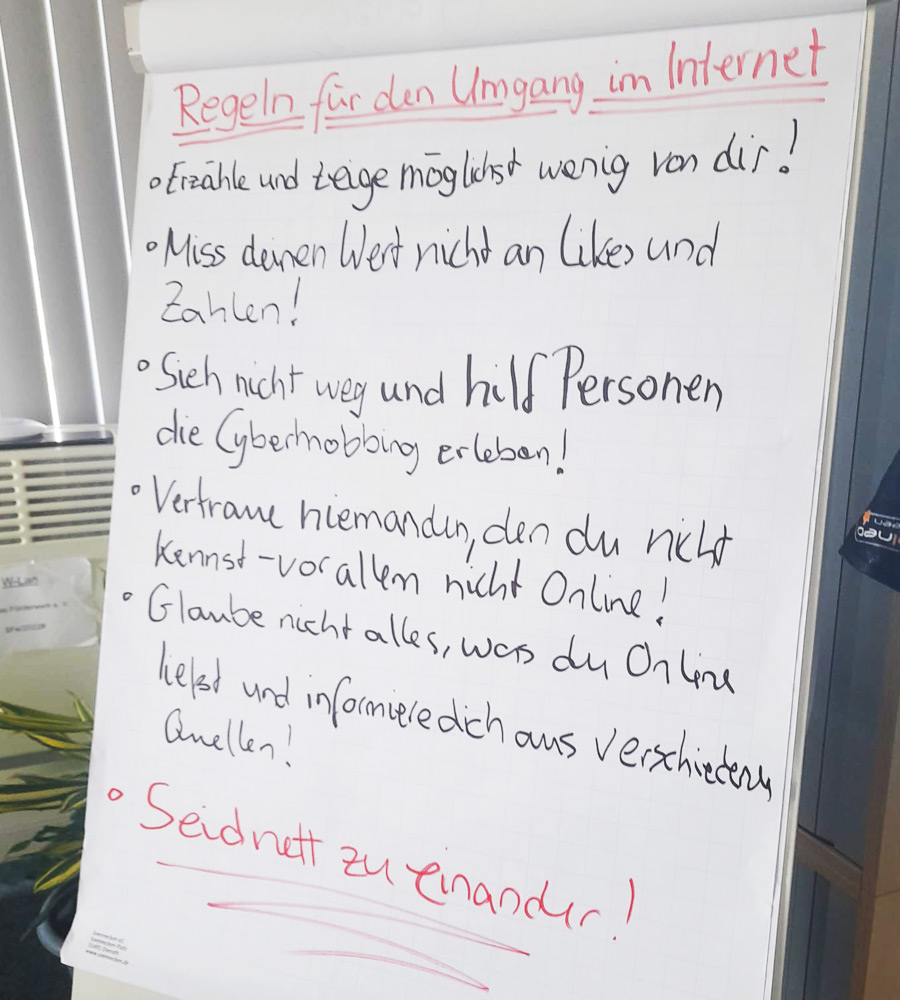 Regeln für den Umgang im Internet
• Erzähle und zeige möglichst wenig von dir!
• Miss deinen Wert nicht an Likes und
Zahlen!
• Sieh nicht weg und hilf Personen
die Cybermobbing erleben!
• Vertraue niemanden, den du nicht
kennst - vor allem nicht Online!
• Glaube nicht alles, was du Online
ließt und informiere dich aus verschiedenen
Quellen!
• Seid nett zu einander!
W-Lan